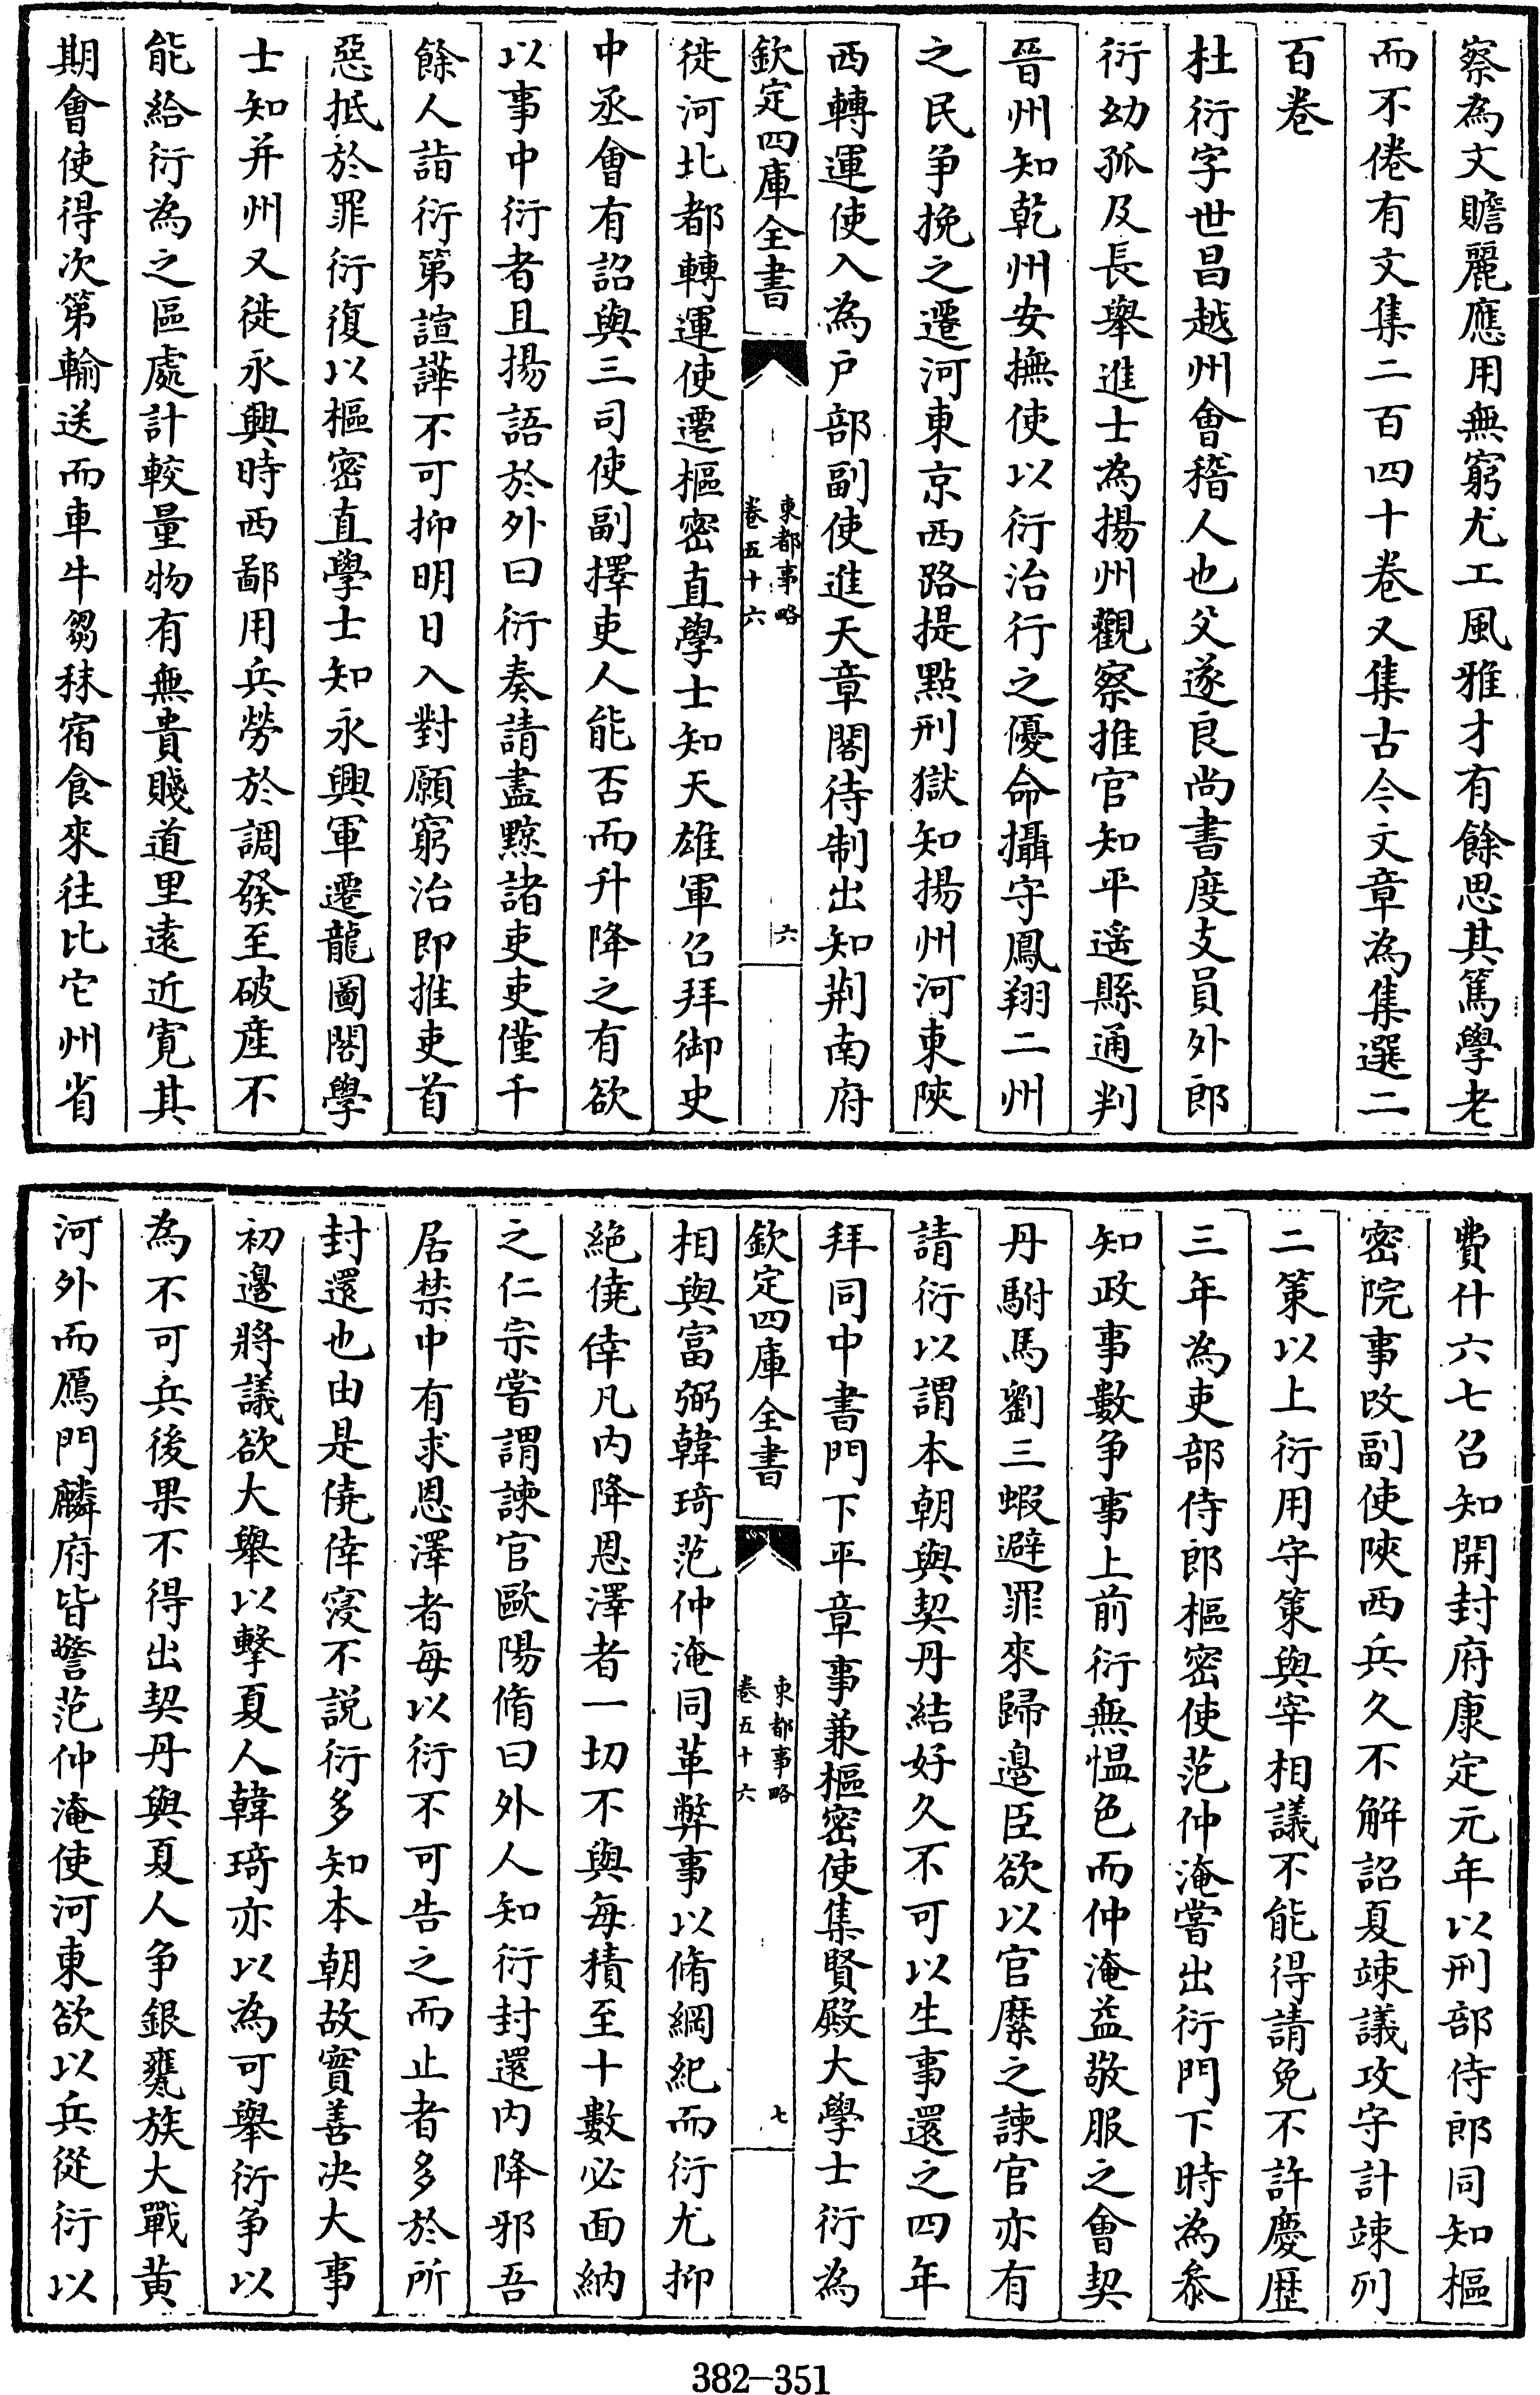 察為文贍麗應用無窮尤工風雅才有餘思其篤學老
而不倦有文集二百四十卷又集古今文章為集選二
百卷
杜衍字世昌越州會稽人也父遂良尚書度支員外郎
衍幼孤及長舉進士為揚州觀察推官知平遙縣通判
晉州知乾州安撫使以衍治行之優命攝守鳳翔二州
之民爭挽之遷河東京西路提點刑獄知揚州河東陝
西轉運使入為户部副使進天章閣待制出知荆南府
欽定四庫全書
東都事略
卷五十六
六
徙河北都轉運使遷樞密直學士知天雄軍召拜御史
中丞會有詔與三司使副擇吏人能否而升降之有欲
以事中衍者且揚語於外曰衍奏請盡黥諸吏吏僅千
餘人詣衍第諠譁不可抑明日入對願窮治即推吏首
惡抵於罪衍復以樞密直學士知永興軍遷龍圖閣學
士知并州又徙永興時西鄙用兵勞於調發至破産不
能給衍為之區處計較量物有無貴賤道里遠近寛其
期會使得次第輸送而車牛芻秣宿食來往比它州省
費什六七召知開封府康定元年以刑部侍郎同知樞
密院事改副使陝西兵久不解詔夏竦議攻守計竦列
二策以上衍用守策與宰相議不能得請免不許慶歴
三年為吏部侍郎樞密使范仲淹嘗出衍門下時為叅
知政事數爭事上前衍無愠色而仲淹益敬服之會契
丹駙馬劉三蝦避罪來歸邊臣欲以官縻之諫官亦有
請衍以謂本朝與契丹結好久不可以生事還之四年
拜同中書門下平章事兼樞密使集賢殿大學士衍為
欽定四庫全書
東都事略
卷五十六
七
相與富弼韓琦范仲淹同革弊事以脩綱紀而衍尤抑
絶僥倖凡内降恩澤者一切不與每積至十數必面納
之仁宗嘗謂諫官歐陽脩曰外人知衍封還内降邪吾
居禁中有求恩澤者每以衍不可告之而止者多於所
封還也由是僥倖寖不説衍多知本朝故實善决大事
初邊將議欲大舉以擊夏人韓琦亦以為可舉衍爭以
為不可兵後果不得出契丹與夏人爭銀甕族大戰黄
河外而鴈門麟府皆警范仲淹使河東欲以兵從衍以
382-351